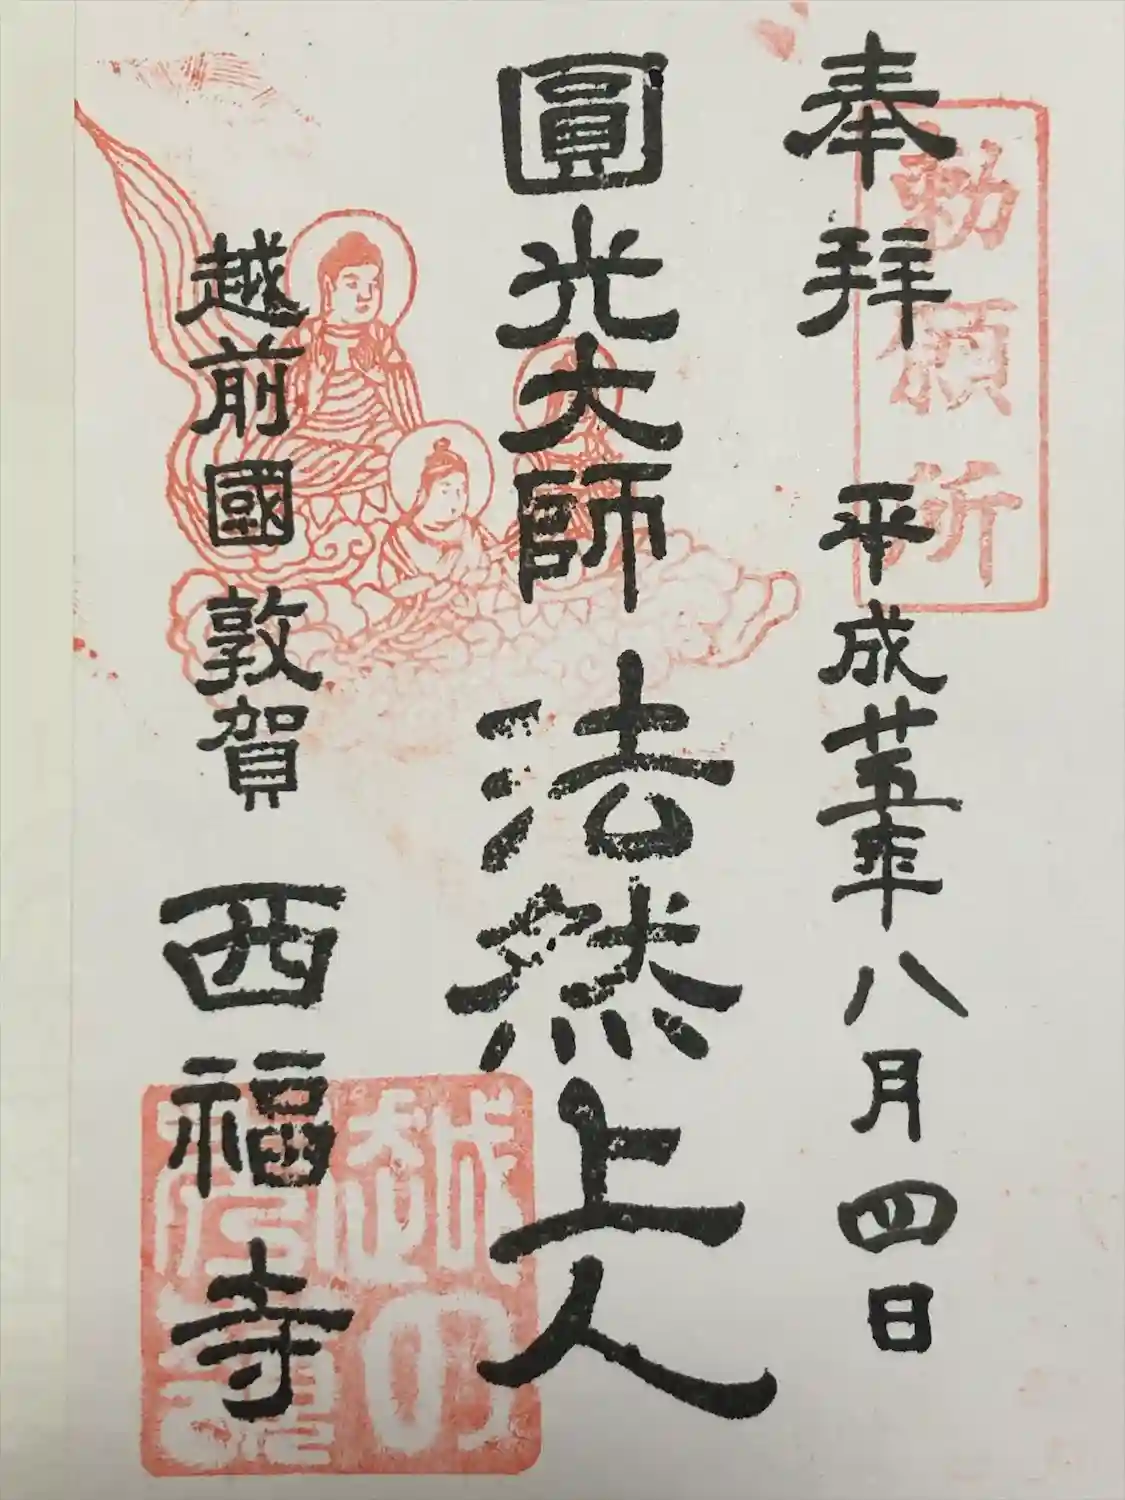 奉拜 平成廿五年八月四日
勅願所
圓光大師 法然上人
越前國 敦賀 西福寺
越の